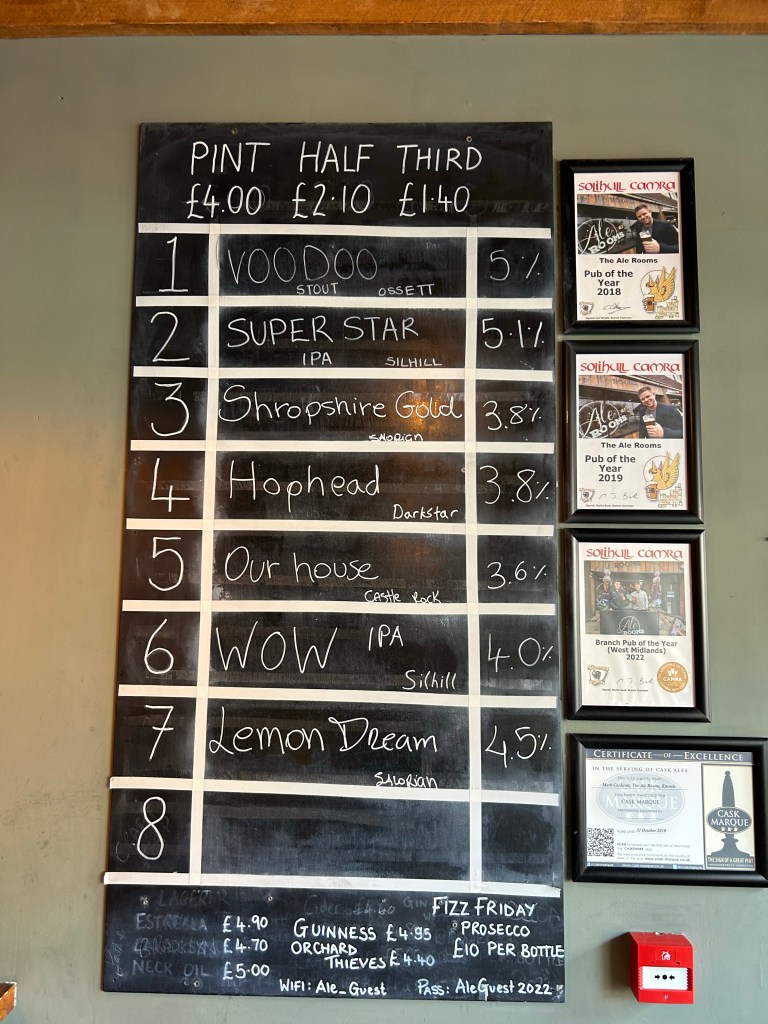 PINT HALF THIRD
£4.00 £2.10 £1.40
1 VOODOO 5%
STOUT OSSETT
2 SUPER STAR 5.1%
IPA SILHILL
3 Shropshire Gold 3.8%
SALOPIAN
4 Hophead 3.8%
Darkstar
5 Our house 3.6%
CAStle Rock
6 WOW IPA 4.0%
Silhill
7 Lemon Dream 4.5%
SALOPian
8
LAGER
ESTRELLA £4.90
£4.70
NECK OIL £5.00
Cider £4.40
GUINNESS £4.95
ORCHARD
THIEVES £4.40
FIZZ FRIDAY
PROSECCO
£10 PER BOTTLE
WIFI: Ale_Guest PASS: AleGuest2022
SOLIHULL CAMRA
The Ale Rooms
Pub of the
Year
2018
SOLIHULL CAMRA
The Ale Rooms
Pub of the
Year
2019
SOLIHULL CAMRA
Branch Pub of the Year
(West Midlands)
2022
CAMRA
CERTIFICATE OF EXCELLENCE
IN THE SERVING OF CASK ALES
CASK MARQUE
31 October 2019
CASK
MARQUE
THE SIGN OF A GREAT PINT